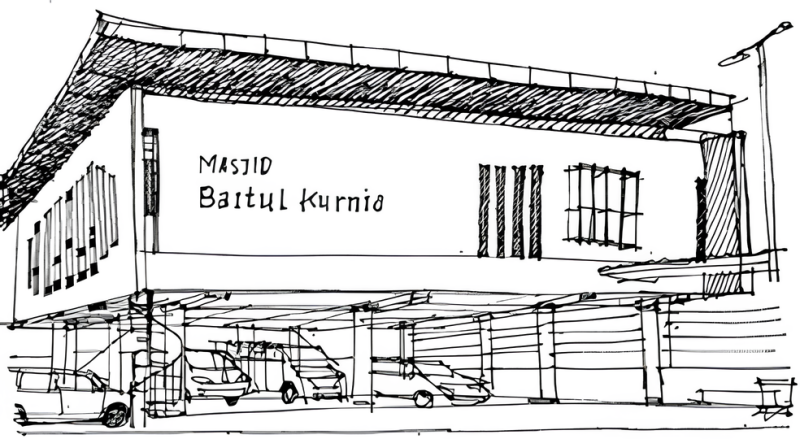 MASJID
Baitul Kurnia